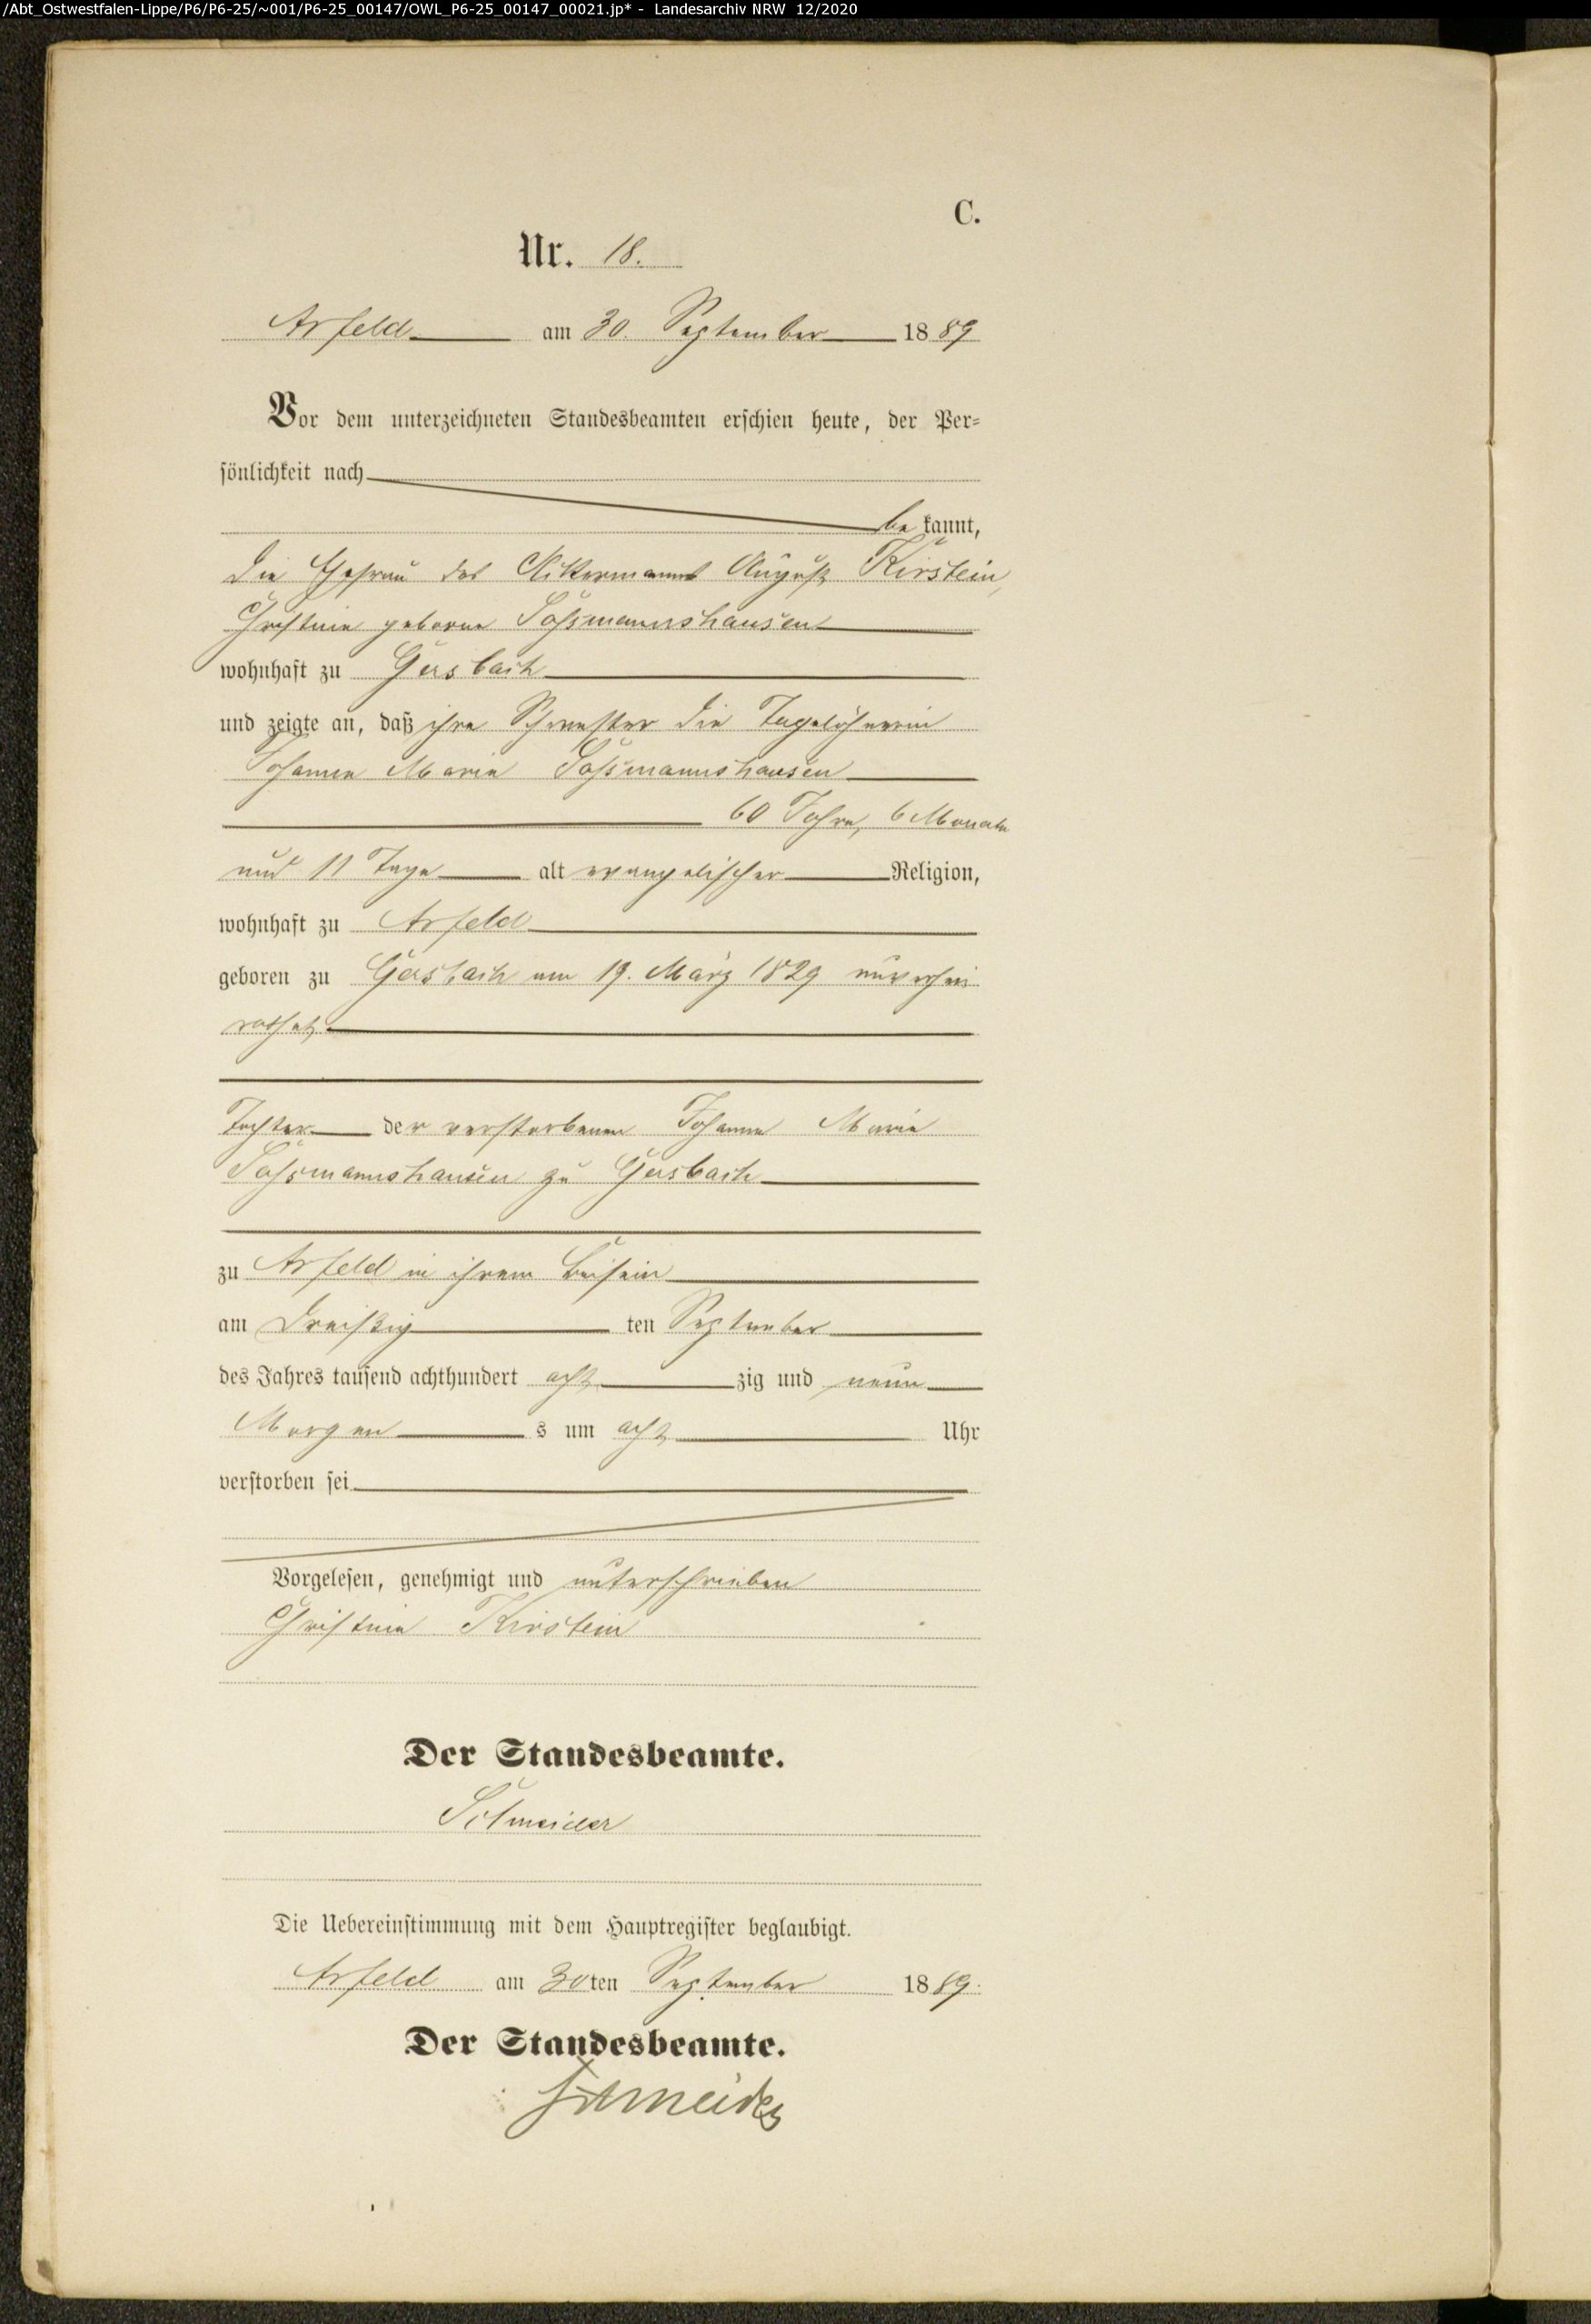 /Abt_Ostwestfalen-Lippe/P6/P6-25/~001/P6-25_00147/OWL_P6-25_00147_00021.jp* - Landesarchiv NRW 12/2020
C.
Nr. 18.
Arfeld am 30. September 1889
Vor dem unterzeichneten Standesbeamten erschien heute, der Per-
sönlichkeit nach
bekannt,
die Ehefrau des Ackermanns August Kirstein,
Christine geborne Sassmannshausen
wohnhaft zu Gersbach
und zeigte an, daß ihre Schwester die Tagelöhnerin
Johanne Marie Sassmannshausen
60 Jahre, 6 Monate
und 11 Tage alt evangelischer Religion,
wohnhaft zu Arfeld
geboren zu Gersbach am 19. März 1829 unverhei
rathet
Tochter der verstorbenen Johanne Marie
Sassmannshausen zu Gersbach
zu Arfeld in ihrem Beisein
am dreißig ten September
des Jahres tausend achthundert acht zig und neun
Morgen s um acht Uhr
verstorben sei
Vorgelesen, genehmigt und unterschrieben
Christine Kirstein
Der Standesbeamte.
Schneider
Die Uebereinstimmung mit dem Hauptregister beglaubigt.
Arfeld am 30ten September 1889.
Der Standesbeamte.
Schneider